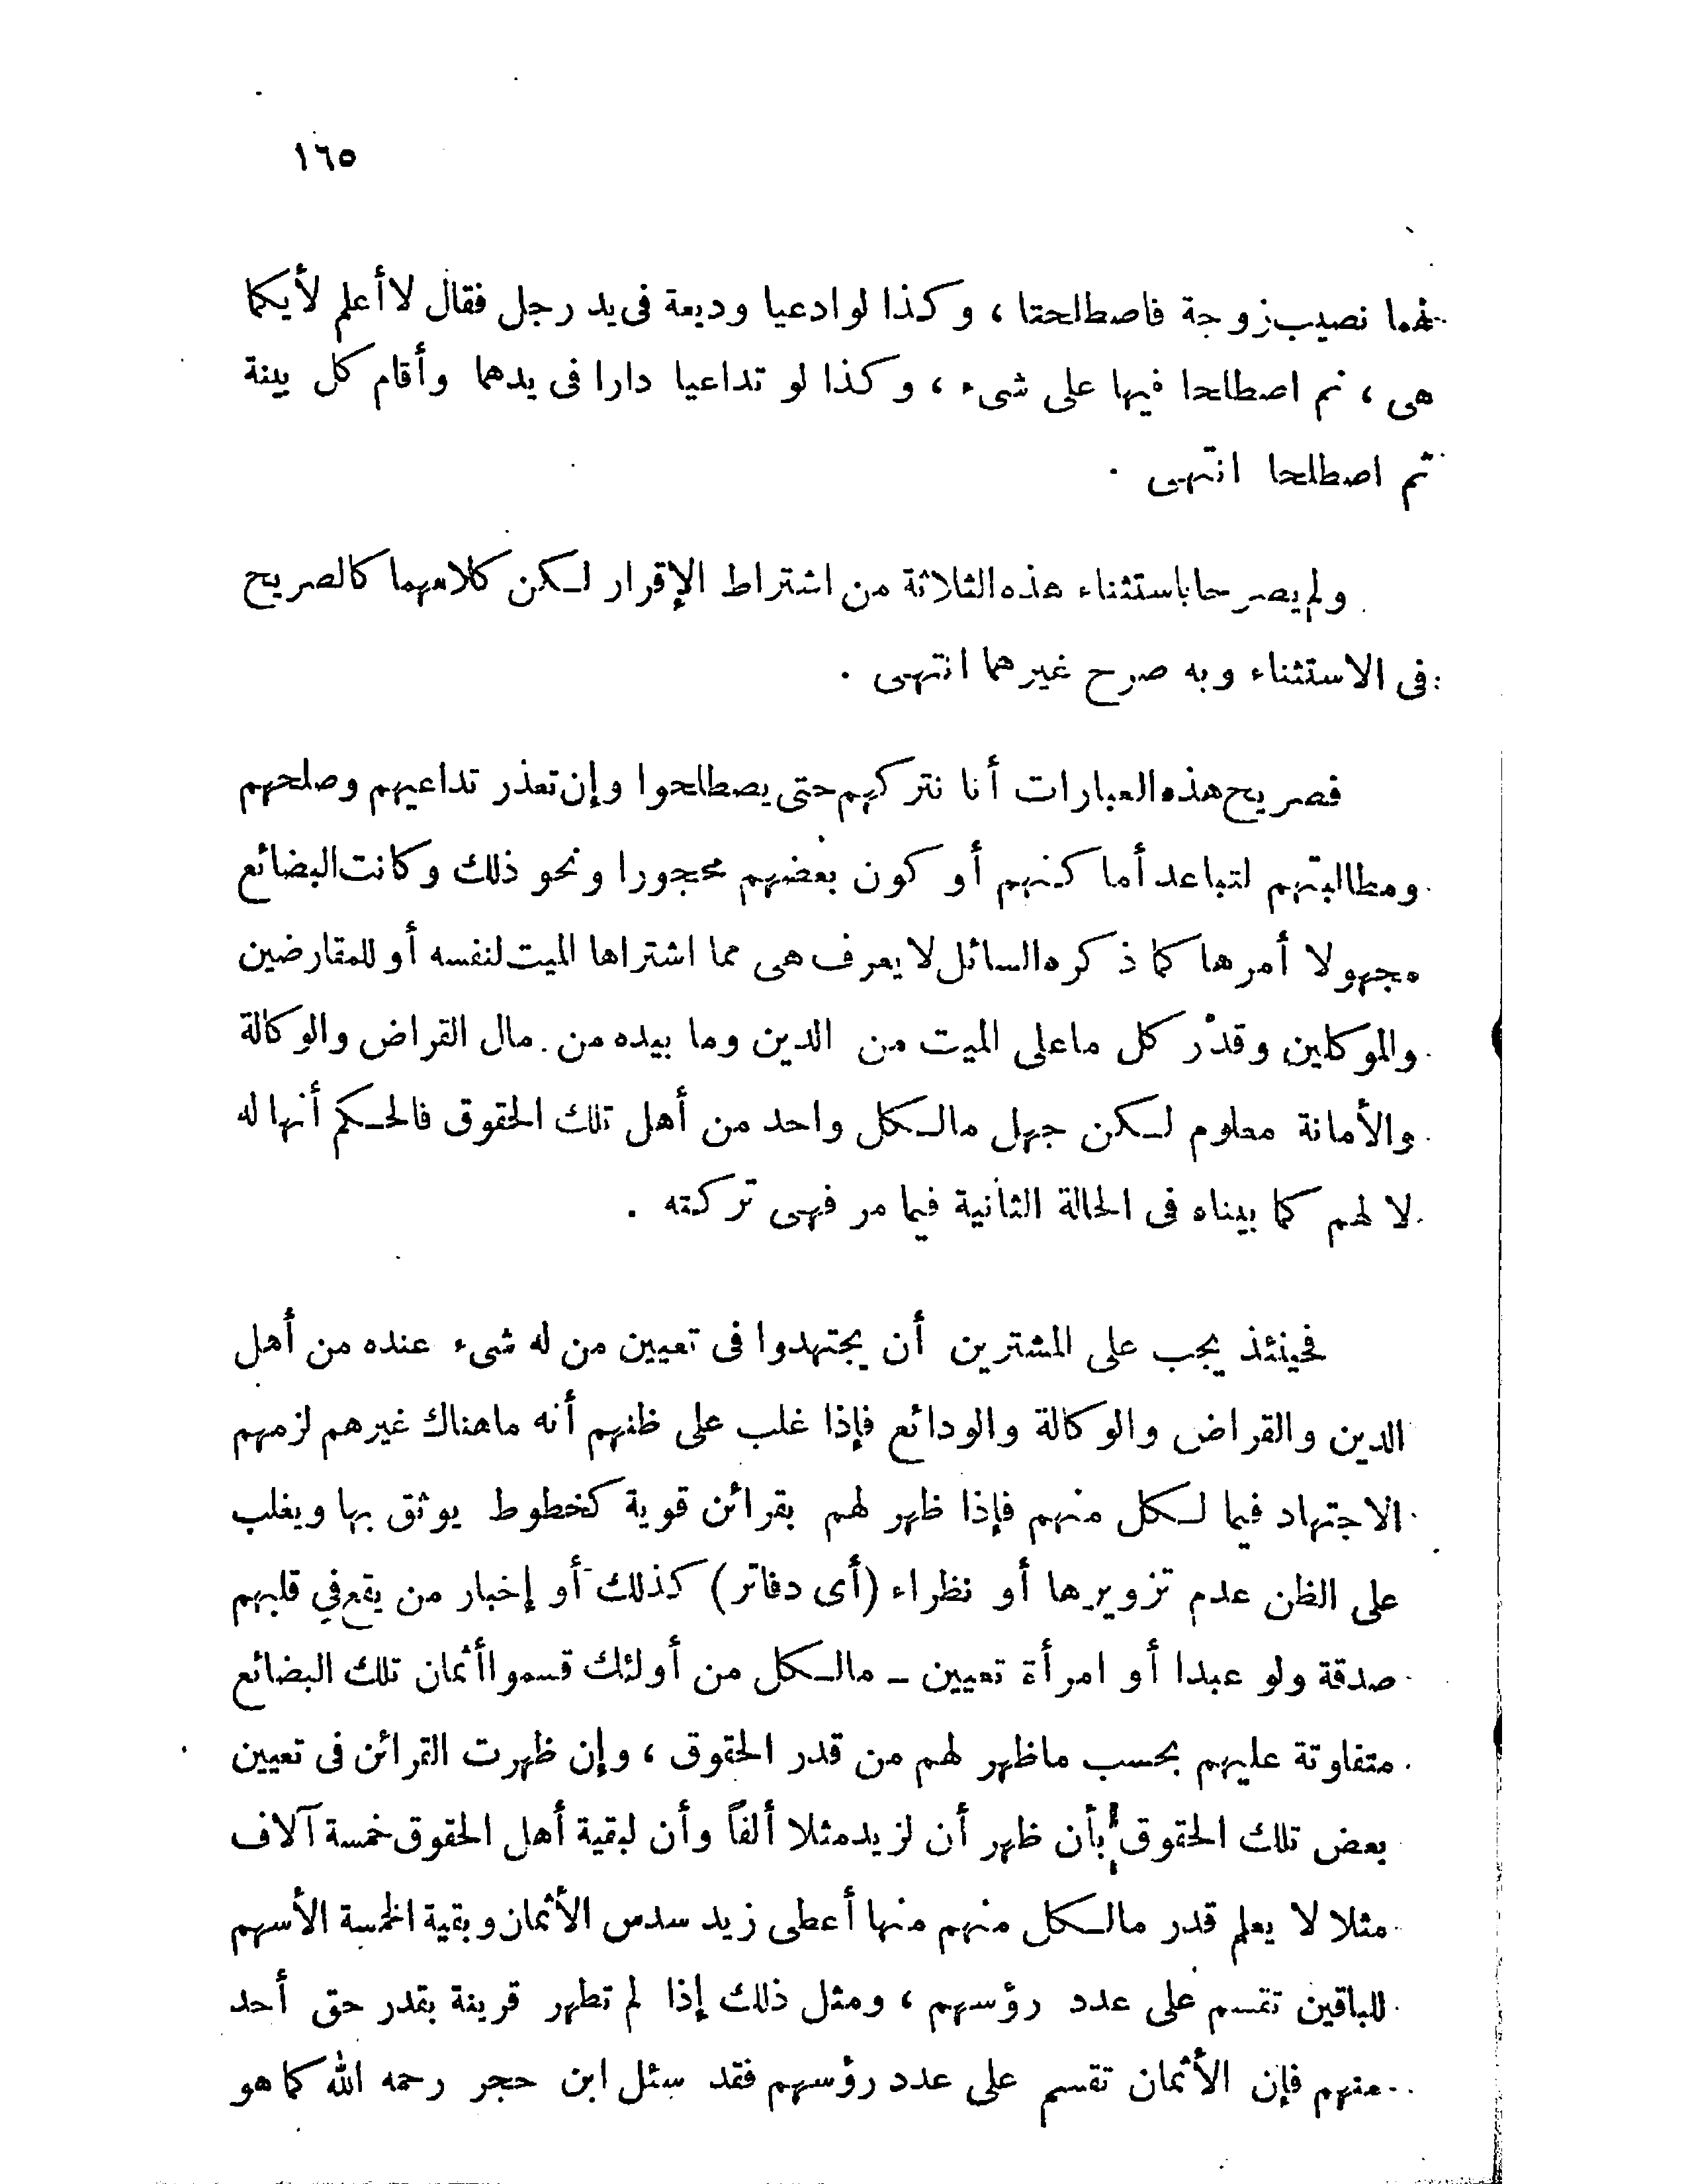 ١٦٥
لهما نصيب زوجة فاصطلحتا ، وكذا لو ادعيا وديعة فى يد رجل فقال لا أعلم لأيكما
هى ، ثم اصطلحا فيها على شىء ، وكذا لو تداعيا دارا فى يدهما وأقام كل بينة
ثم اصطلحا انتهى .
ولم يصرحا باستثناء هذه الثلاثة من اشتراط الإقرار لكن كلامهما كالصريح
فى الاستثناء وبه صرح غيرهما انتهى .
فصريح هذه العبارات أنا نتركهم حتى يصطلحوا وإن تعذر تداعيهم وصلحهم
ومطالبتهم لتباعد أماكنهم أو كون بعضهم محجورا ونحو ذلك وكانت البضائع
مجهولا أمرها كما ذكره السائل لا يعرف هى مما اشتراها الميت لنفسه أو للمقارضين
والموكلين وقدْر كل ما على الميت من الدين وما بيده من مال القراض والوكالة
والأمانة معلوم لكن جهل مالكل واحد من أهل تلك الحقوق فالحكم أنها له
لا لهم كما بيناه فى الحالة الثانية فيما مر فهى تركته .
فحينئذ يجب على المشترين أن يجتهدوا فى تعيين من له شىء عنده من أهل
الدين والقراض والوكالة والودائع فإذا غلب على ظنهم أنه ماهناك غيرهم لزمهم
الاجتهاد فيما لكل منهم فإذا ظهر لهم بقرائن قوية كخطوط يوثق بها ويغلب
على الظن عدم تزويرها أو نظراء (أى دفاتر) كذلك أو إخبار من يقع في قلبهم
صدقة ولو عبدا أو امرأة تعيين ــ مالكل من أولئك قسموا أثمان تلك البضائع
متفاوتة عليهم بحسب ماظهر لهم من قدر الحقوق ، وإن ظهرت القرائن فى تعيين
بعض تلك الحقوق بأن ظهر أن لزيد مثلا ألفاً وأن لبقية أهل الحقوق خمسة آلاف
مثلا لا يعلم قدر مالكل منهم منها أعطى زيد سدس الأثمان وبقية الخمسة الأسهم
للباقين تقسم على عدد رؤسهم ، ومثل ذلك إذا لم تظهر قرينة بقدر حق أحد
منهم فإن الأثمان تقسم على عدد رؤسهم فقد سئل ابن حجر رحمه الله كما هو